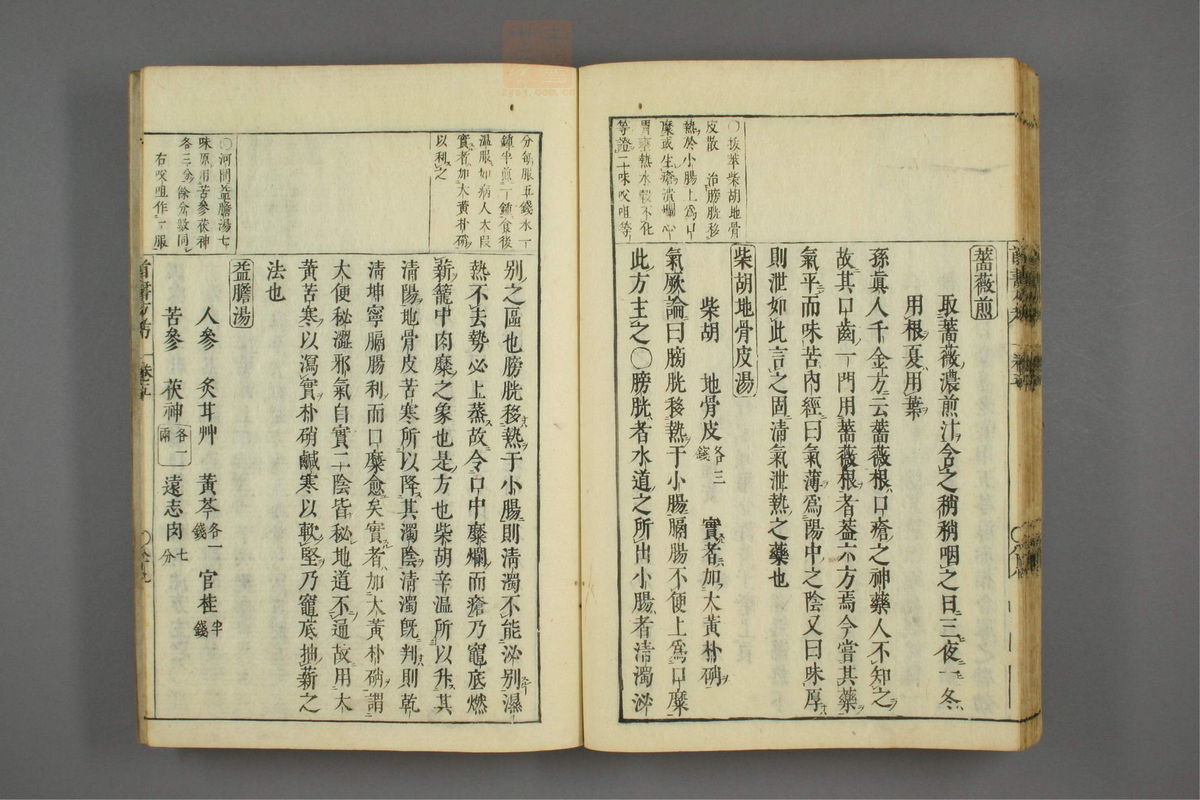 薔薇煎
取薔薇濃煎汁含之稍稍咽之日三夜一冬
用根夏用葉
孫眞人千金方云薔薇根口瘡之神藥人不知之
故其口齒一門用薔薇根者葢六方焉今嘗其藥
氣平而味苦內經曰氣薄爲陽中之陰又曰味厚
則泄如此言之固清氣泄熱之藥也
柴胡地骨皮湯
柴胡 地骨皮各三錢 實者加大黃朴硝
氣厥論曰膀胱移熱于小腸膈腸不便上爲口糜
此方主之○膀胱者水道之所出小腸者清濁泌
○拔萃柴胡地骨
皮散 治膀胱移
熱於小腸上爲口
糜或生瘡潰爛心
胃壅熱水穀不化
等證二味㕮咀等
分每服五錢水一
鍾半煎一鍾食後
溫服如病人大叚
實者加大黃朴硝
以利之
別之區也膀胱移熱于小腸則清濁不能泌別濕
熱不去勢必上蒸故令口中糜爛而瘡乃竈底燃
薪籠中肉糜之象也是方也柴胡辛温所以升其
清陽地骨皮苦寒所以降其濁陰清濁旣判則乾
清坤寧膈腸利而口糜愈矣實者加大黃朴硝謂
大便秘澀邪氣自實二陰皆秘地道不通故用大
黃苦寒以瀉實朴硝鹹寒以軟堅乃竈底抽薪之
法也
益膽湯
人參 炙甘艸 黃芩各一錢 官桂半錢
苦參 茯神各一兩 遠志肉七分
○河間益膽湯七
味原用苦參茯神
各三分餘分數同
右㕮咀作一服